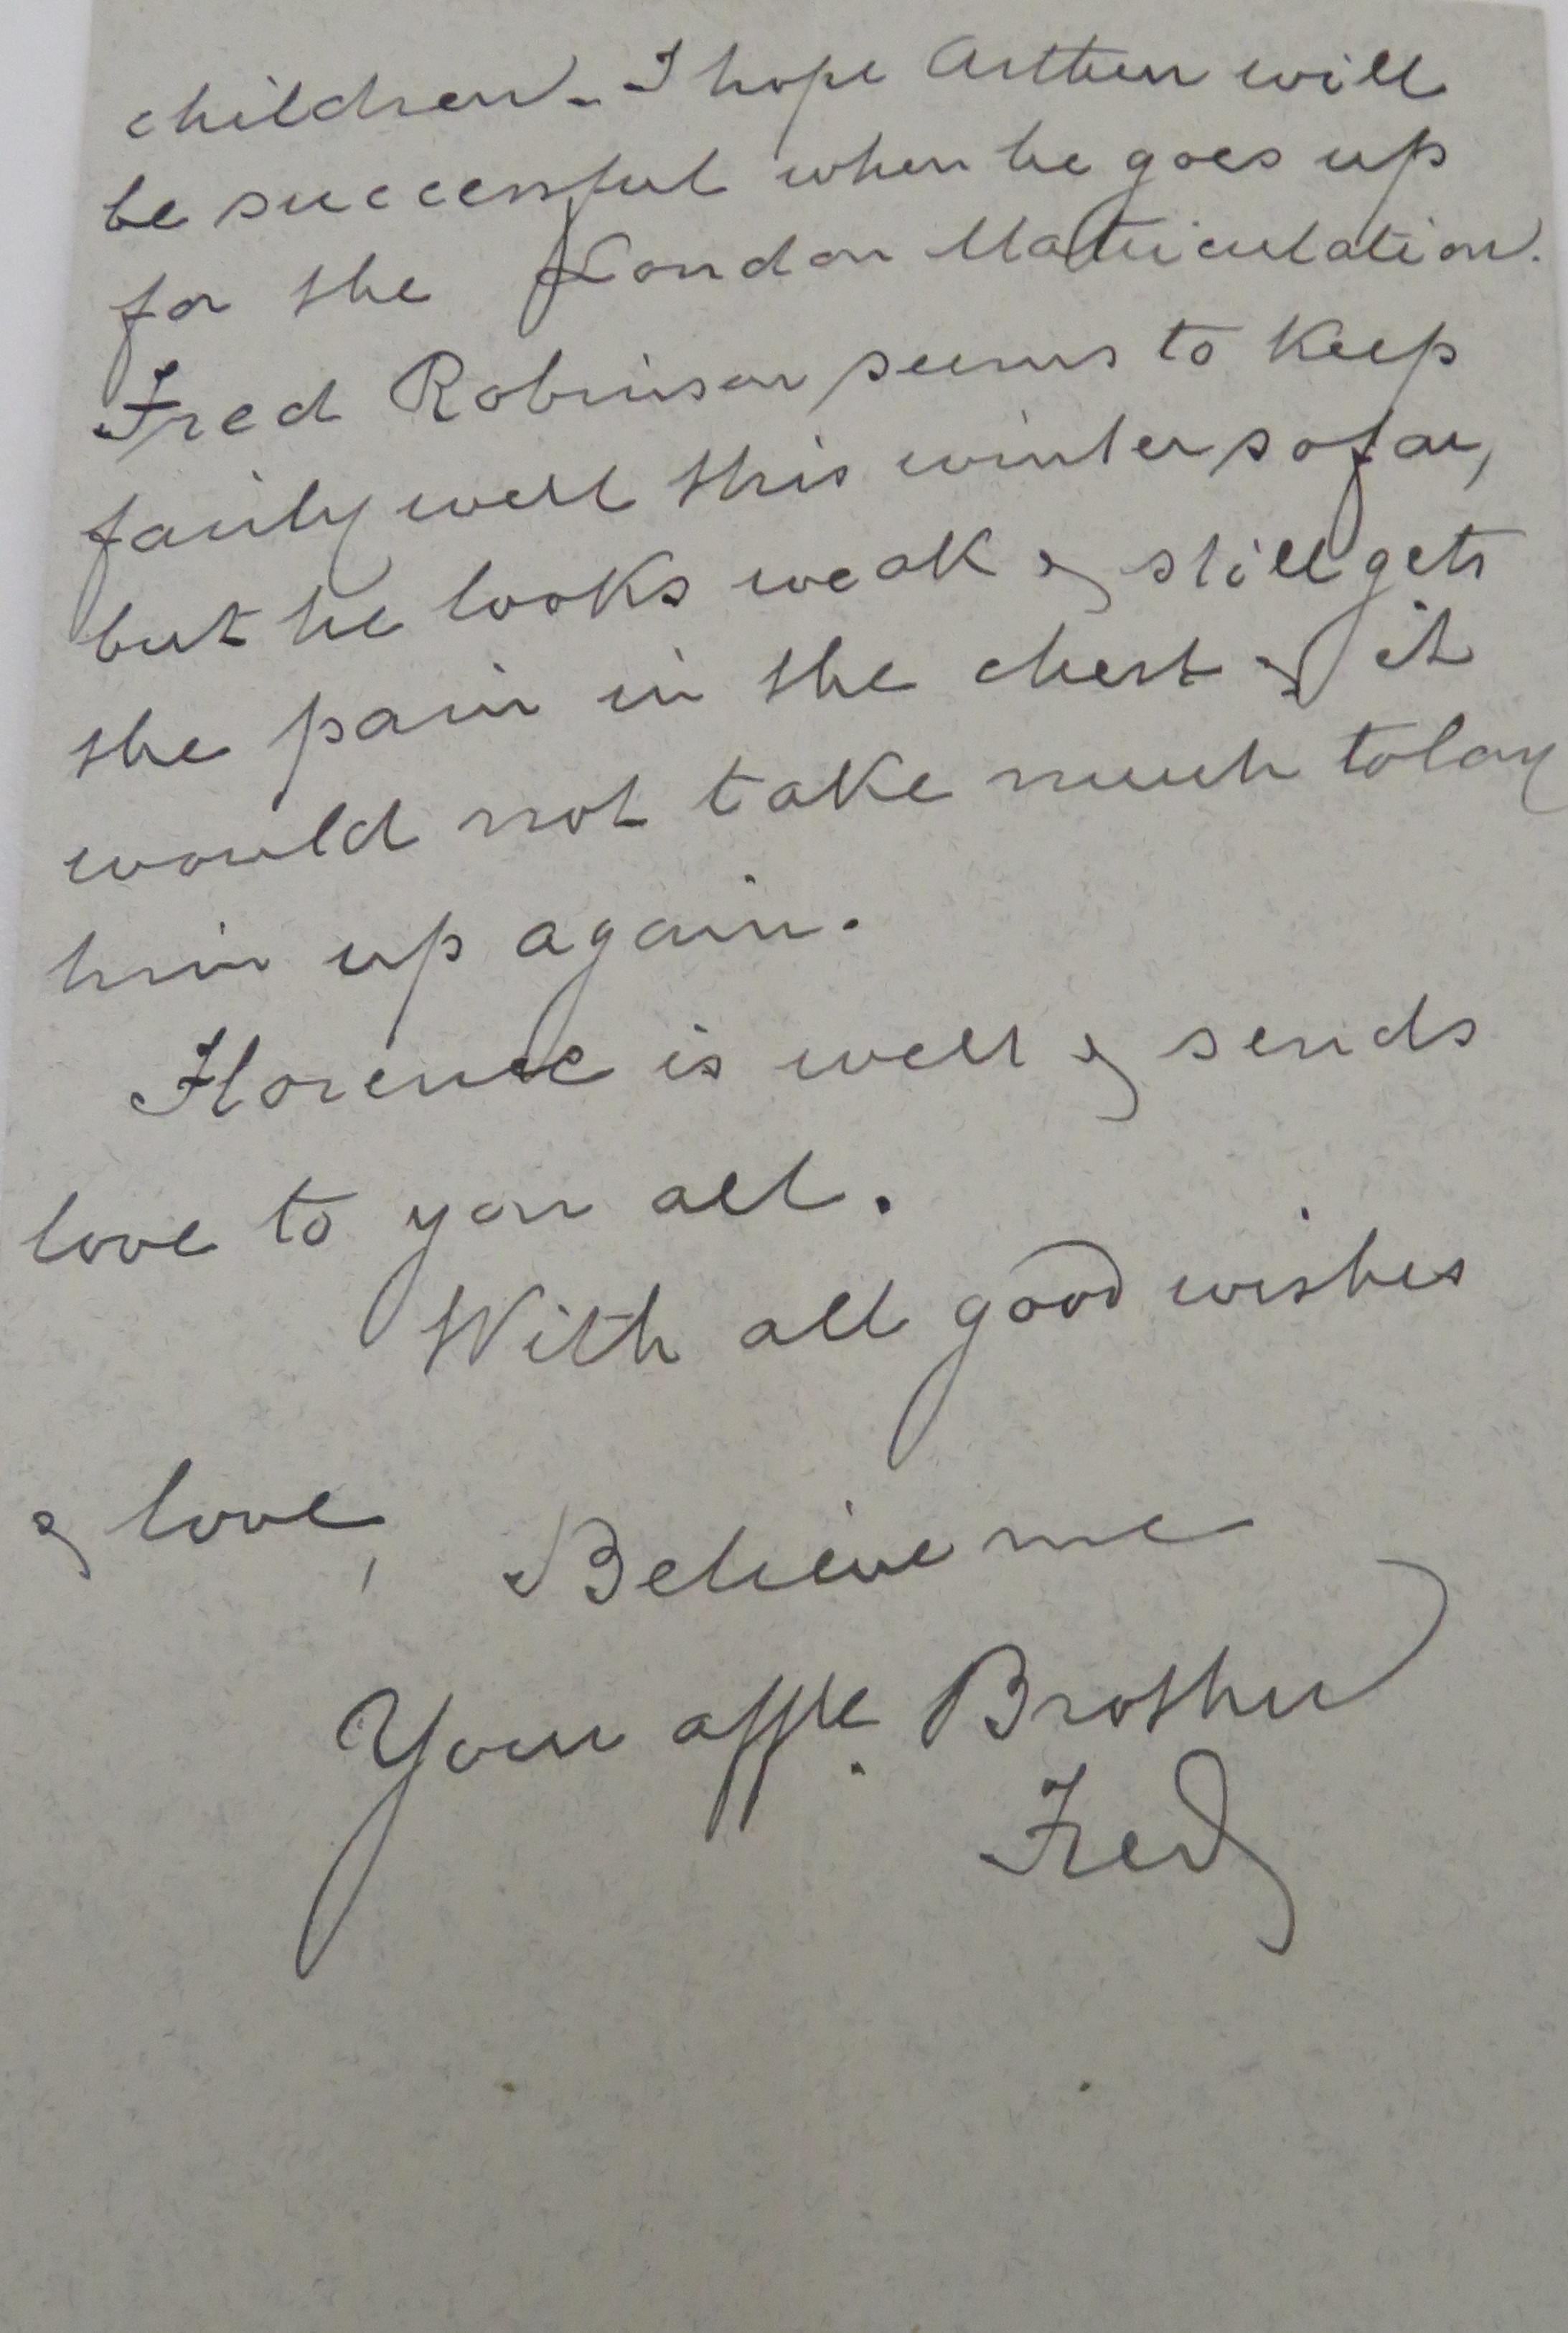 children. I hope Arthur will
be successful when he goes up
for the London Matriculation.
Fred Robinson seems to keep
fairly well this winter so far,
but he looks weak & still gets
the pain in the chest & it
would not take much to lay
him up again.
Florence is well & sends
love to you all.
With all good wishes
& love, Believe me
Your affte. Brother
Fred